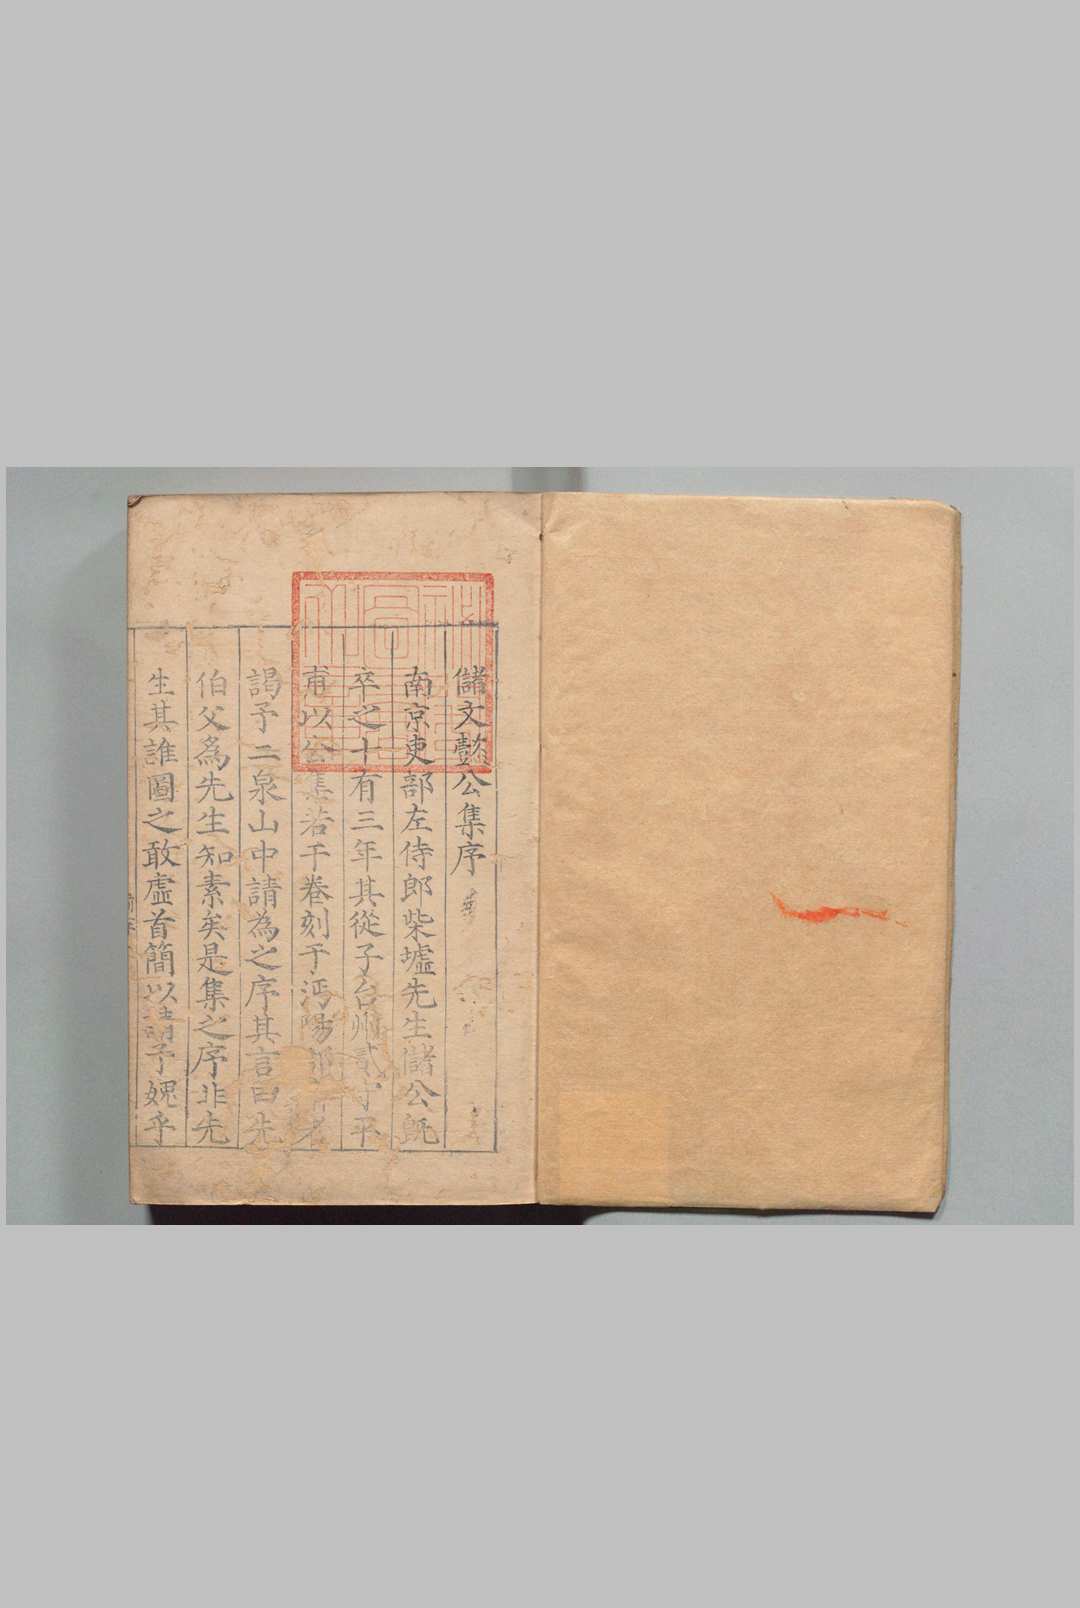 儲文懿公集序
南京吏部左侍郎柴墟先生儲公既
卒之十有三年其從子台州貳守平
甫以公集若干卷刻于沔陽
謁予二泉山中請為之序其言曰先
伯父為先生知素矣是集之序非先
生其誰圖之敢虛首簡以請予媿乎